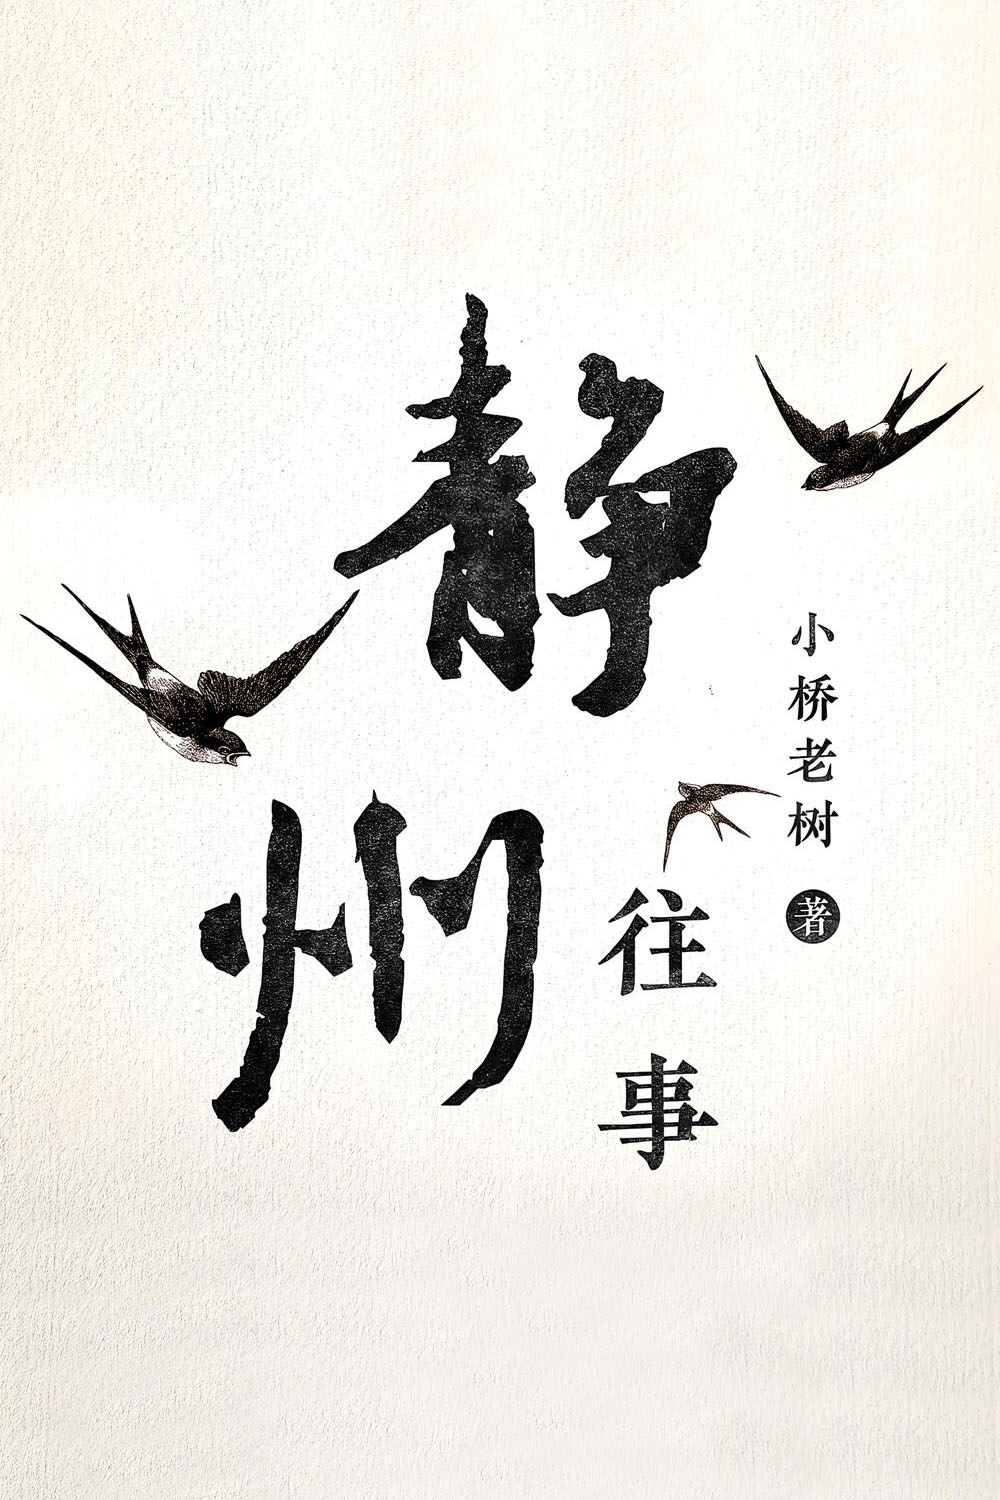 静州
往事
小桥老树 著